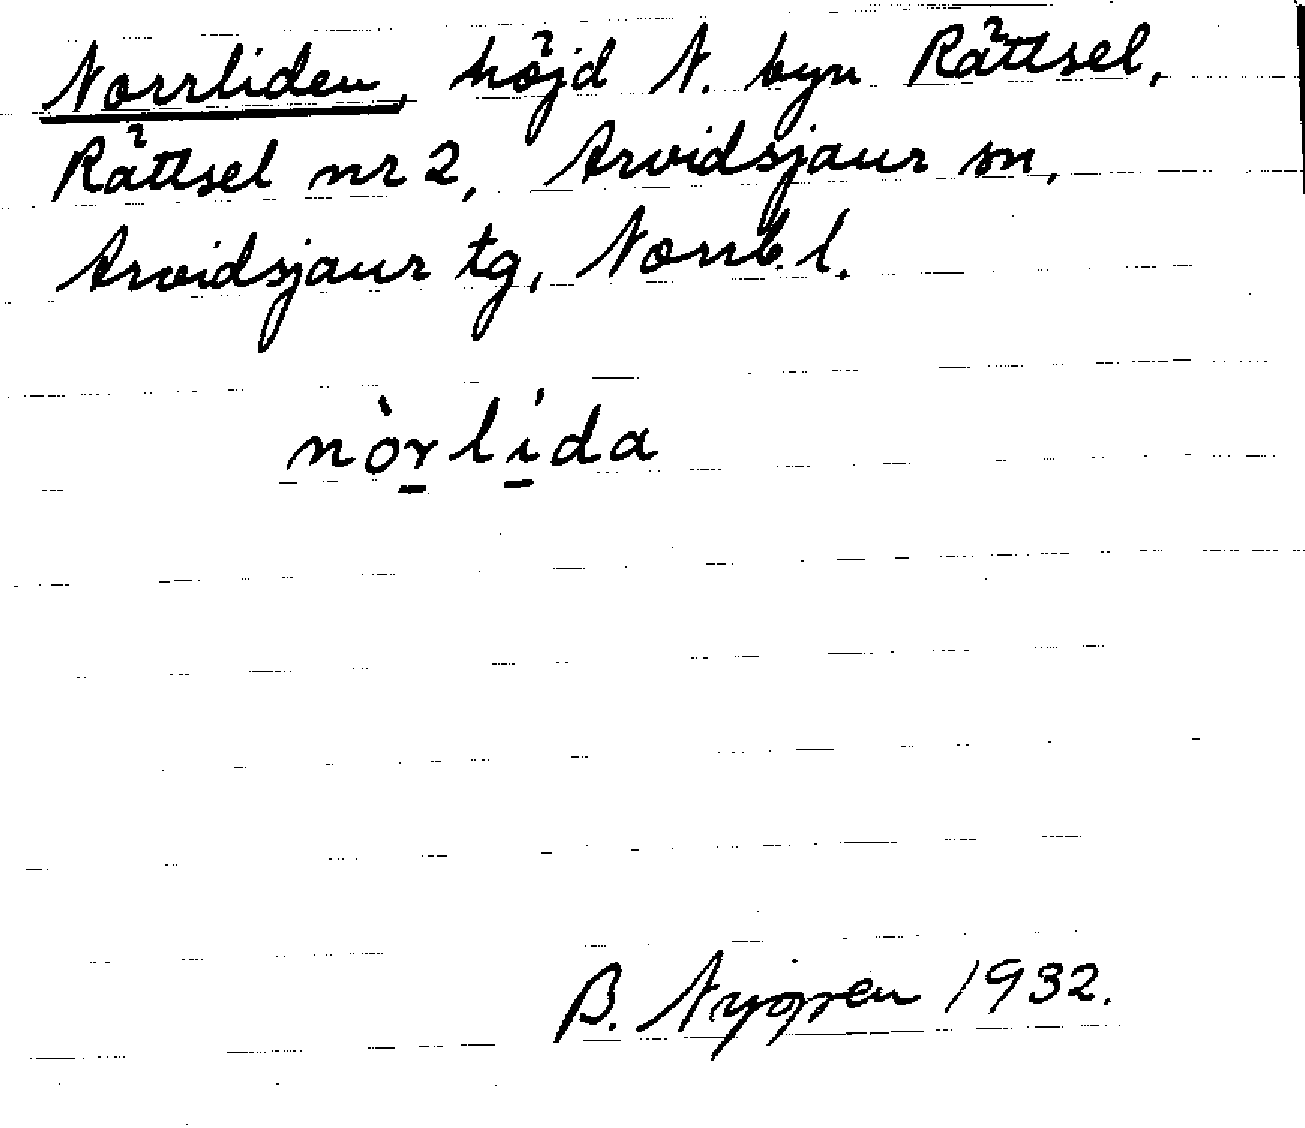 Norrliden, höjd N. byn Rättsel,
Rättsel nr 2, Arvidsjaur sn,
Arvidsjaur tg, Norrb. l.
nòrlída
B. Nygren 1932.